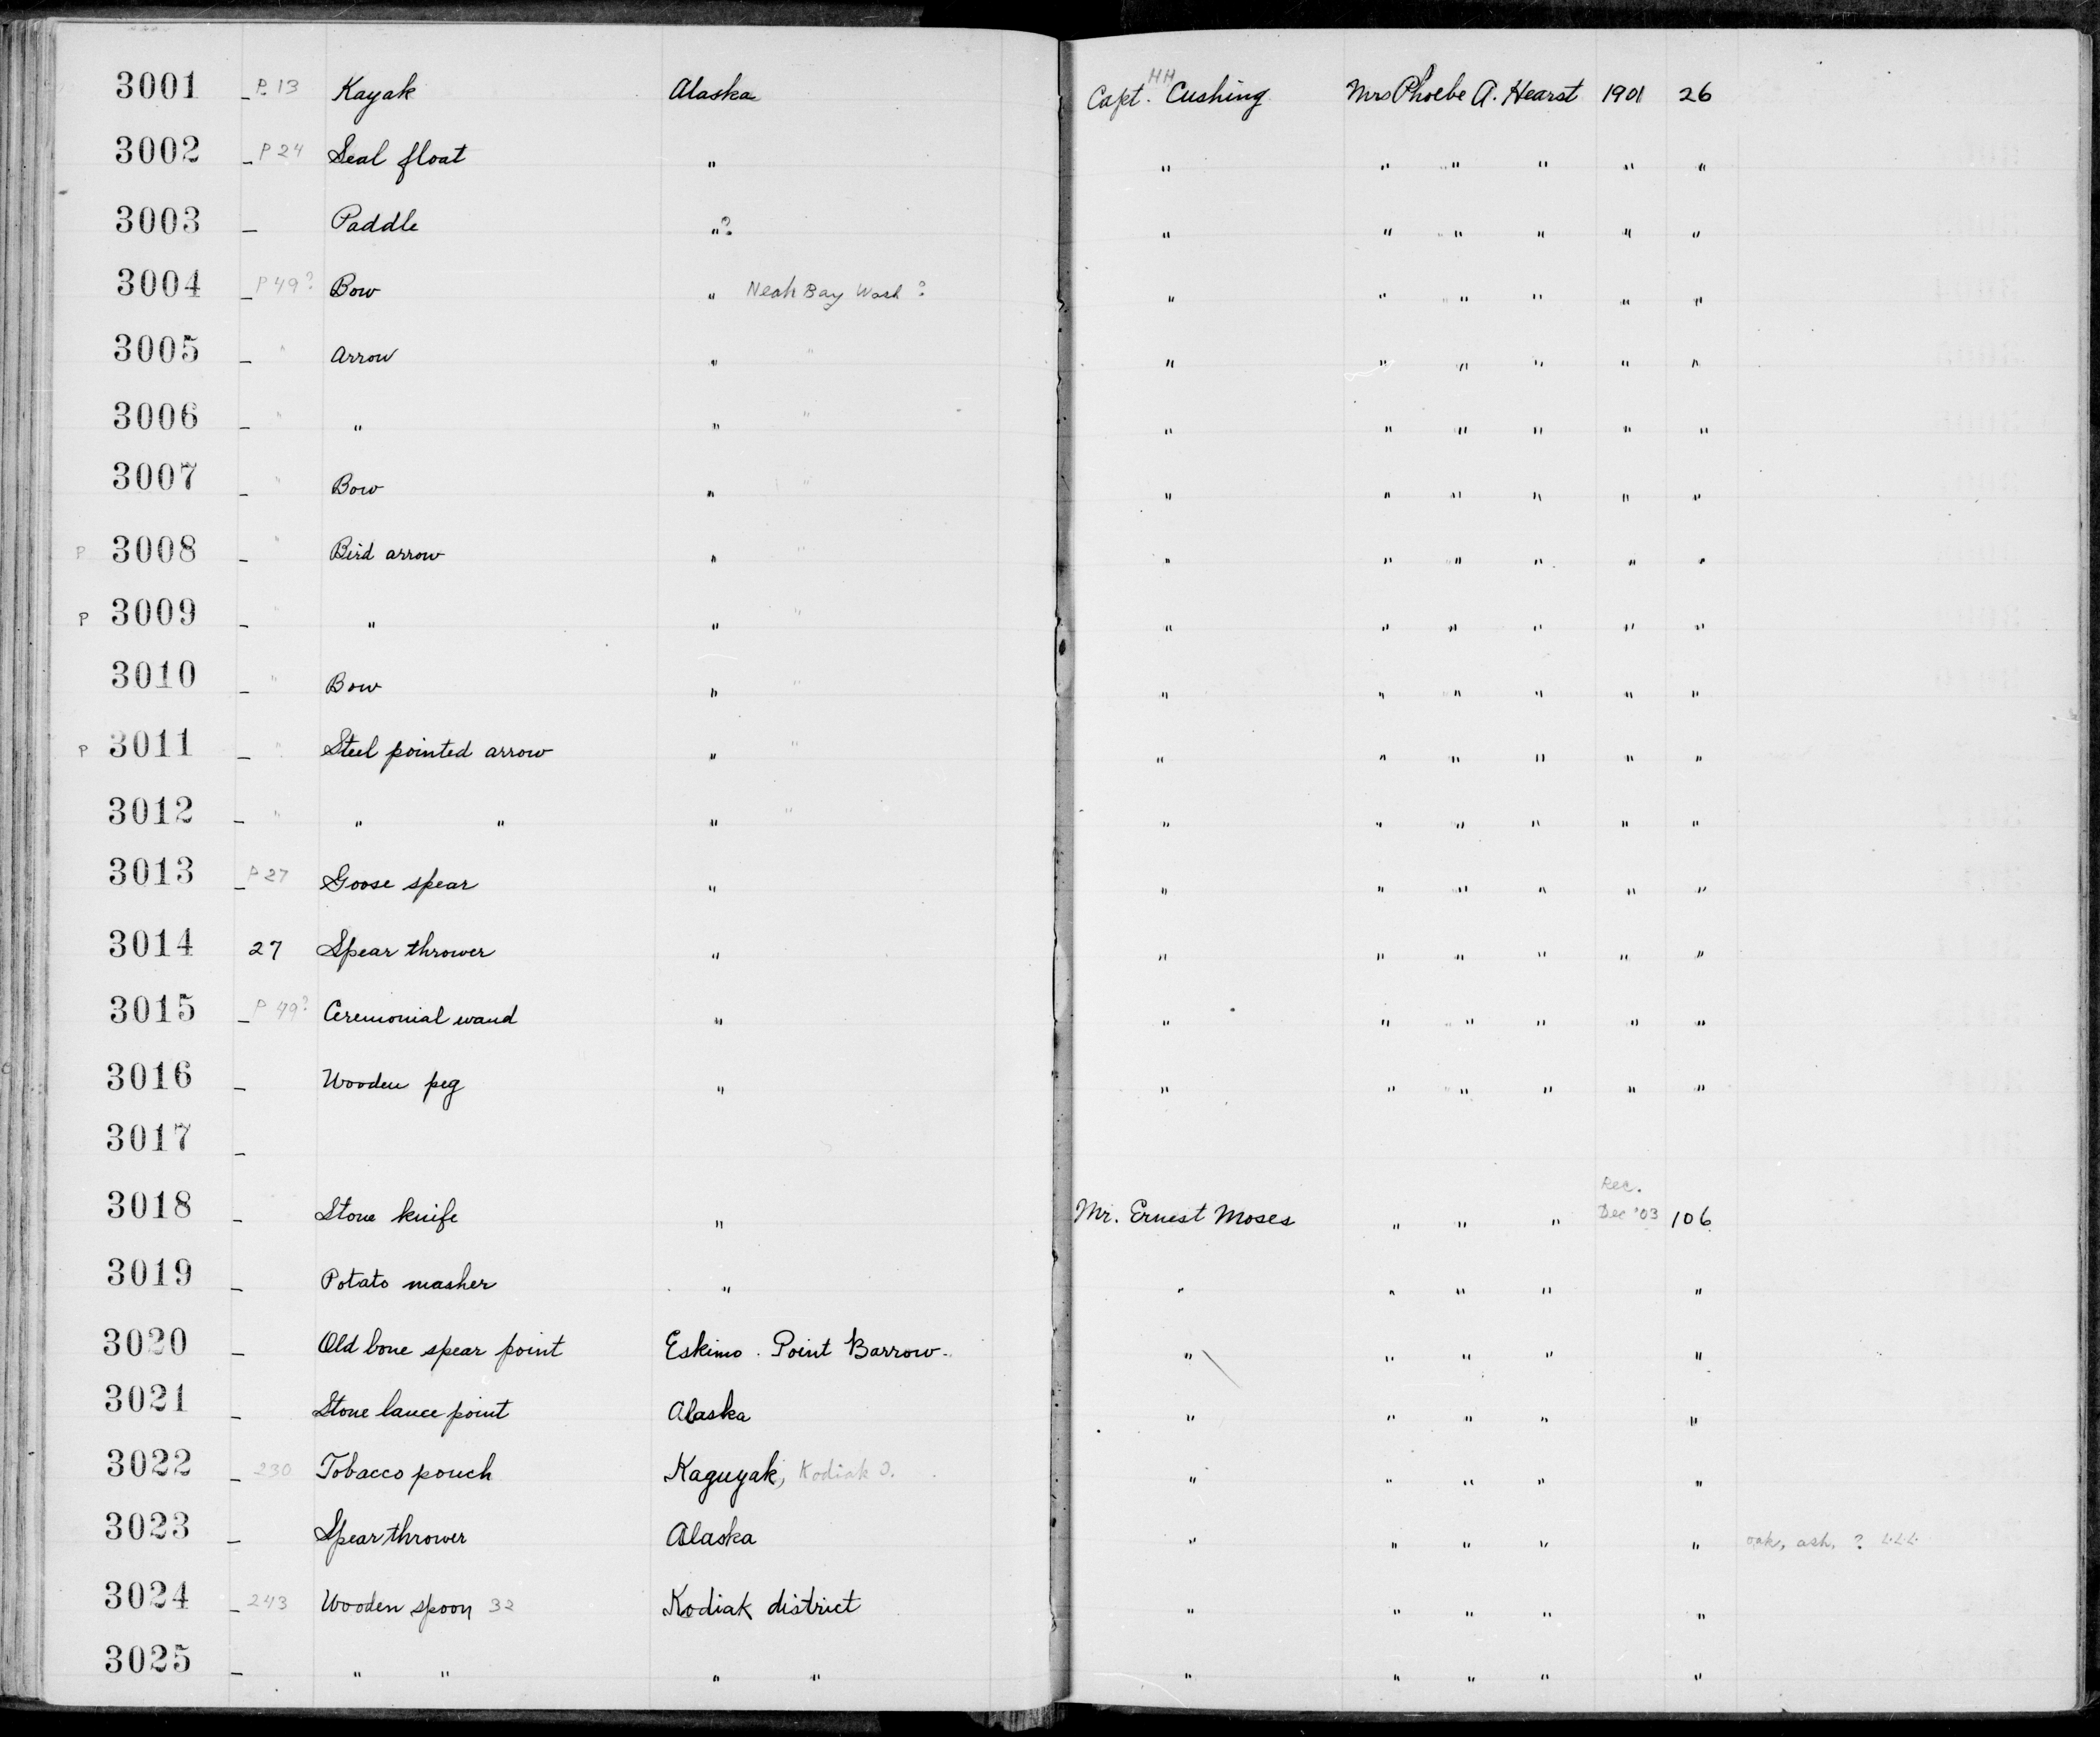 3001 – P. 13 Kayak Alaska Capt. HH Cushing Mrs Phoebe A. Hearst 1901 26
3002 – P 24 Seal float " " " " " " "
3003 – Paddle " ? " " " " " "
3004 – P 49? Bow " Neah Bay Wash ? " " " " " "
3005 – " Arrow " " " " " " " "
3006 – " " " " " " " " " "
3007 – " Bow " " " " " " " "
P 3008 – " Bird arrow " " " " " " " "
P 3009 – " " " " " " " " " "
3010 – " Bow " " " " " " " "
P 3011 – " Steel pointed arrow " " " " " " " "
3012 – " " " " " " " " " " "
3013 – P 27 Goose spear " " " " " " "
3014 27 Spear thrower " " " " " " "
3015 – P 49? Ceremonial wand " " " " " " "
3016 – Wooden peg " " " " " " "
3017 –
3018 – Stone knife " Mr. Ernest Moses " " " Rec. Dec '03 106
3019 – Potato masher " " " " " "
3020 – Old bone spear point Eskimo. Point Barrow. " " " " "
3021 – Stone lance point Alaska " " " " "
3022 – 230 Tobacco pouch Kaguyak, Kodiak I. " " " " "
3023 – Spear thrower Alaska " " " " " oak, ash, ?
3024 – 243 Wooden spoon 32 Kodiak district " " " " "
3025 – " " " " " " " " "